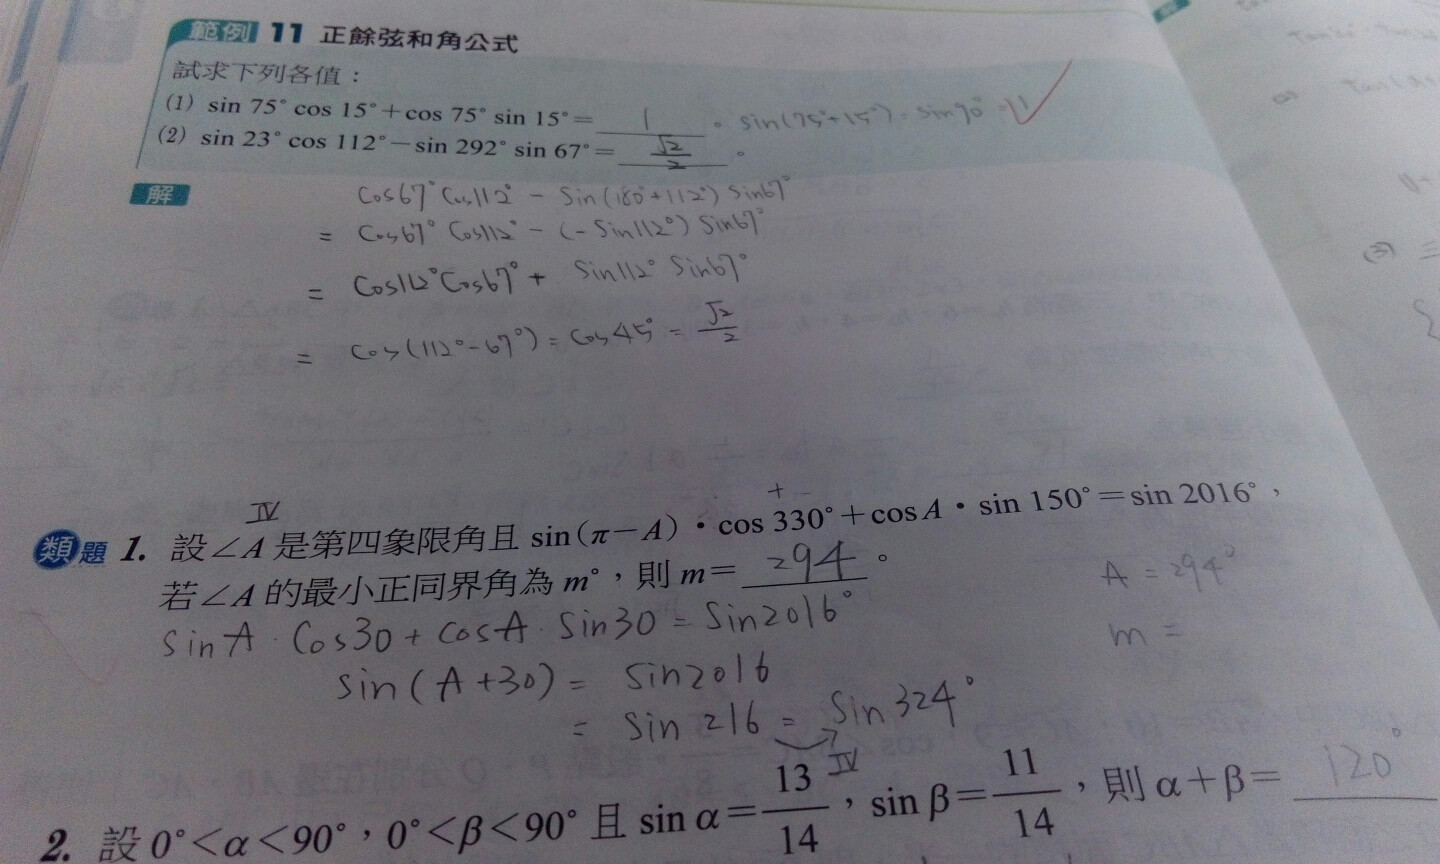 範例 11 正餘弦和角公式
試求下列各值：
(1) sin 75° cos 15°＋cos 75° sin 15°＝ 1 。 sin(75°+15°) = sin90° = 1
(2) sin 23° cos 112°－sin 292° sin 67°＝ √2/2 。
解
Cos67° Cos112° - Sin(180°+112°) Sin67°
= Cos67° Cos112° - (-Sin112°) Sin67°
= Cos112° Cos67° + Sin112° Sin67°
= Cos(112°-67°) = Cos45° = √2/2
IV
+ -
類題 1. 設∠A 是第四象限角且 sin(π－A)・cos 330°＋cos A・sin 150°＝sin 2016°，
若∠A 的最小正同界角為 m°，則 m＝ 294 。
A = 294°
sinA · Cos30 + cosA · Sin30 = Sin2016°
m =
sin(A+30) = Sin2016
= Sin 216 = Sin 324°
IV
2. 設 0°＜α＜90°，0°＜β＜90° 且 sin α＝13/14，sin β＝11/14，則 α＋β＝ 120°